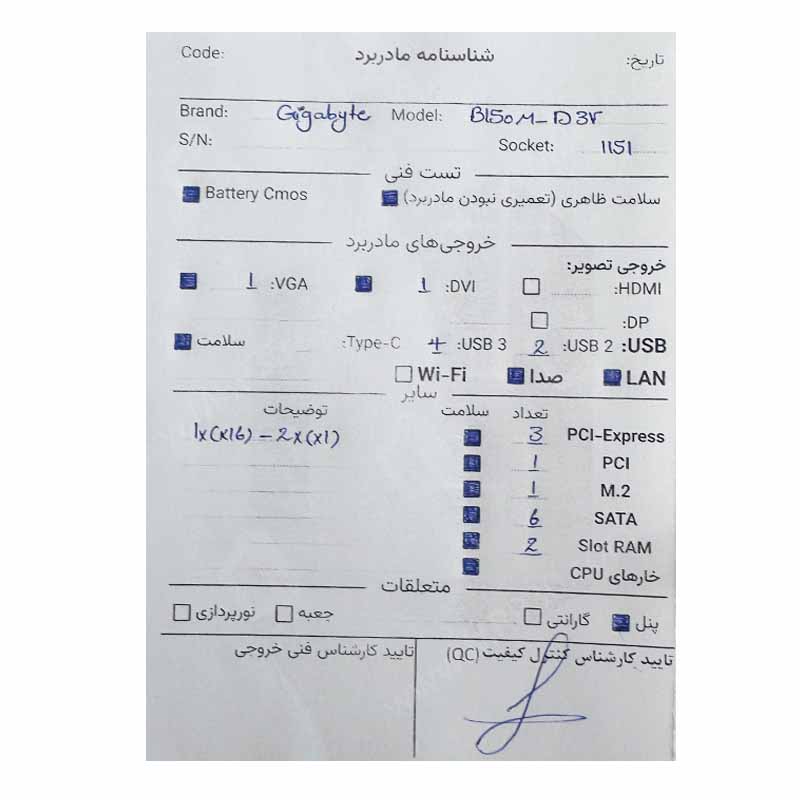 تاریخ: شناسنامه مادربرد Code:
Brand: Gigabyte Model: B150M-D3V
S/N: Socket: 1151
تست فنی
سلامت ظاهری (تعمیری نبودن مادربرد) Battery Cmos
خروجی‌های مادربرد
خروجی تصویر:
HDMI: DVI: 1 VGA: 1
DP:
USB: USB 2: 2 USB 3: 4 Type-C: سلامت
LAN صدا Wi-Fi
سایر
تعداد سلامت توضیحات
PCI-Express 3 1x(x16) - 2x(x1)
PCI 1
M.2 1
SATA 6
Slot RAM 2
خارهای CPU
متعلقات
پنل گارانتی جعبه نورپردازی
تایید کارشناس کنترل کیفیت (QC) تایید کارشناس فنی خروجی